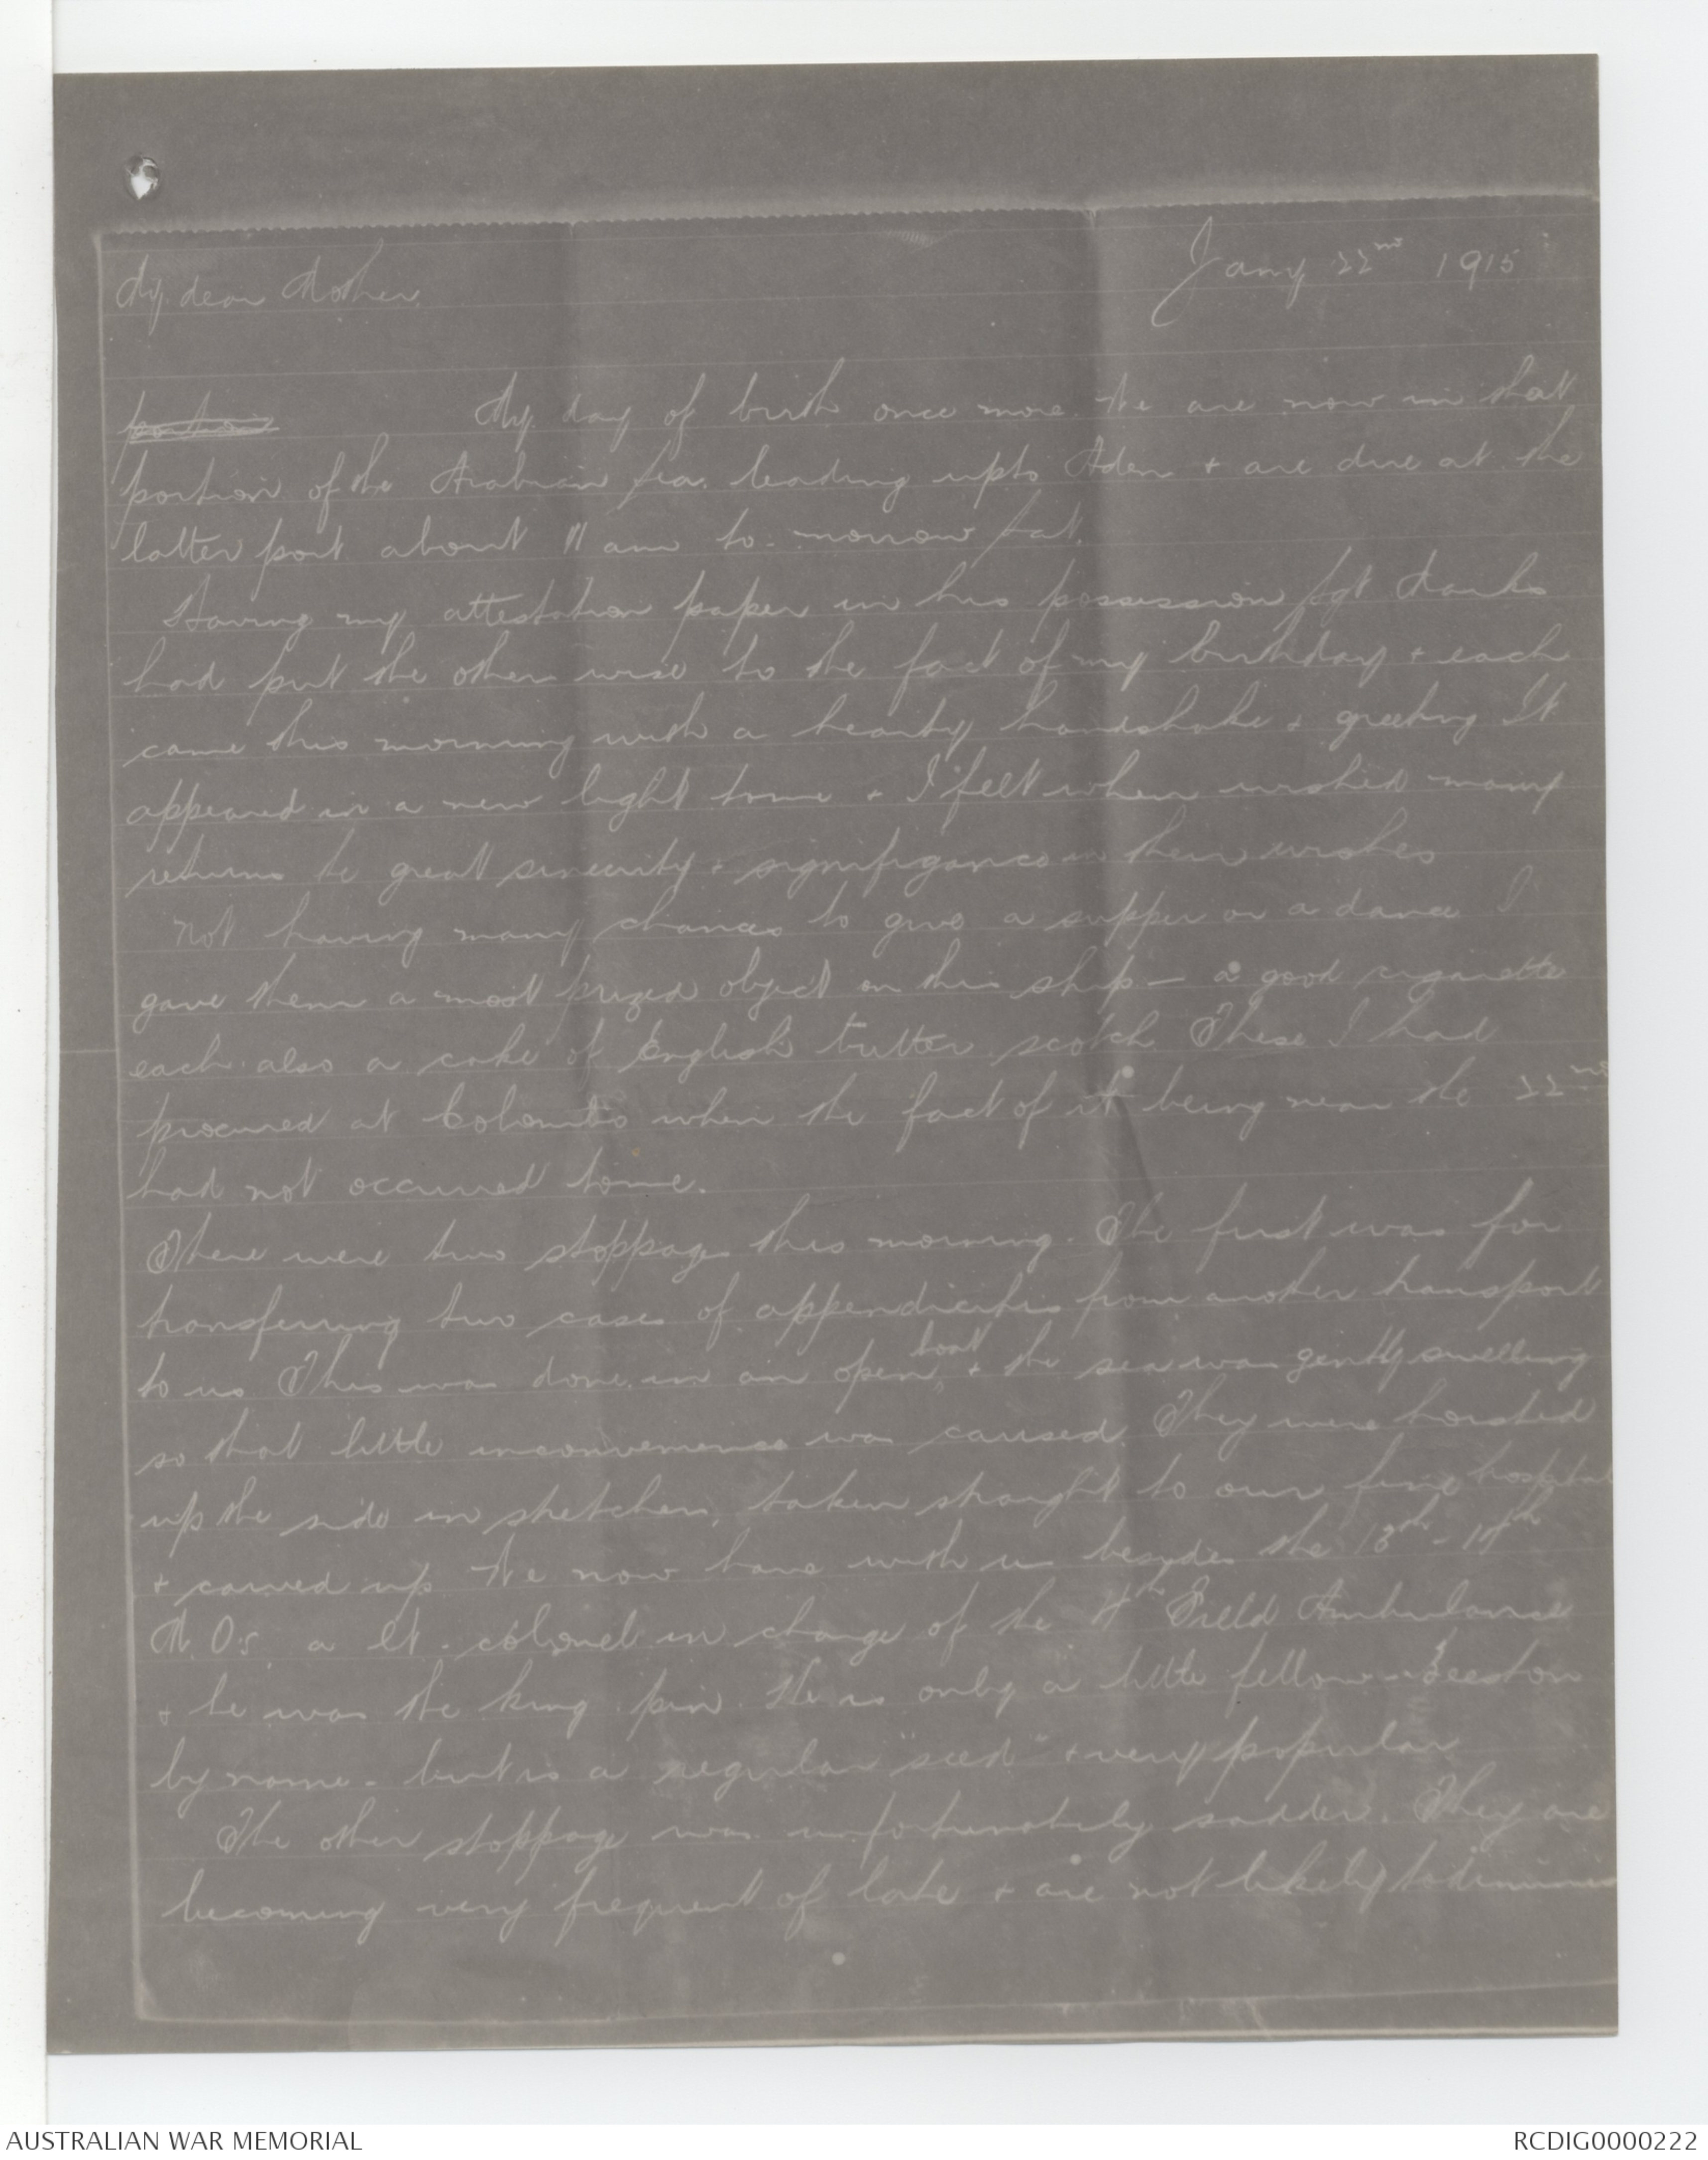 Jany 22nd 1915
My dear Mother,
portion My day of birth once more. We are now in that
portion of the Arabian Sea leading upto Aden + are due at the
latter port about 11 am to-morrow Sat.
Having my attestation paper in his possession Sgt
had put the others wise to the fact of my birthday + each
came this morning with a hearty handshake + greeting It
appeared in a new light tome + I felt when wished many
returns be great sincerity + signifigance in their wishes
Not having many chances to give a supper or a dance I
gave them a most prized object on this ship - a good cigarette
each also a cake of English butter scotch These I had
procured at Colombo when the fact of it being near the 22nd
had not occurred tome.
There were two stoppages this morning. The first was for
transferring two cases of appendicitis from another transport
to us This was done in an open boat + the sea was gently swelling
so that little inconvenience was caused. They were hoisted
up the side in stretchers, taken straight to our fine hospital
+ carved up. We now have with us besides the 13th - 14th
M.O's. a Lt-colonel in charge of the 4th Field Ambulance
+ he was the king pin. He is only a little fellow - Beeston
by name - but is a regular "seed" + very popular
The other stoppage was unfortunately sadder. They are
becoming very frequent of late + are not likely
AUSTRALIAN WAR MEMORIAL
RCDIG0000222